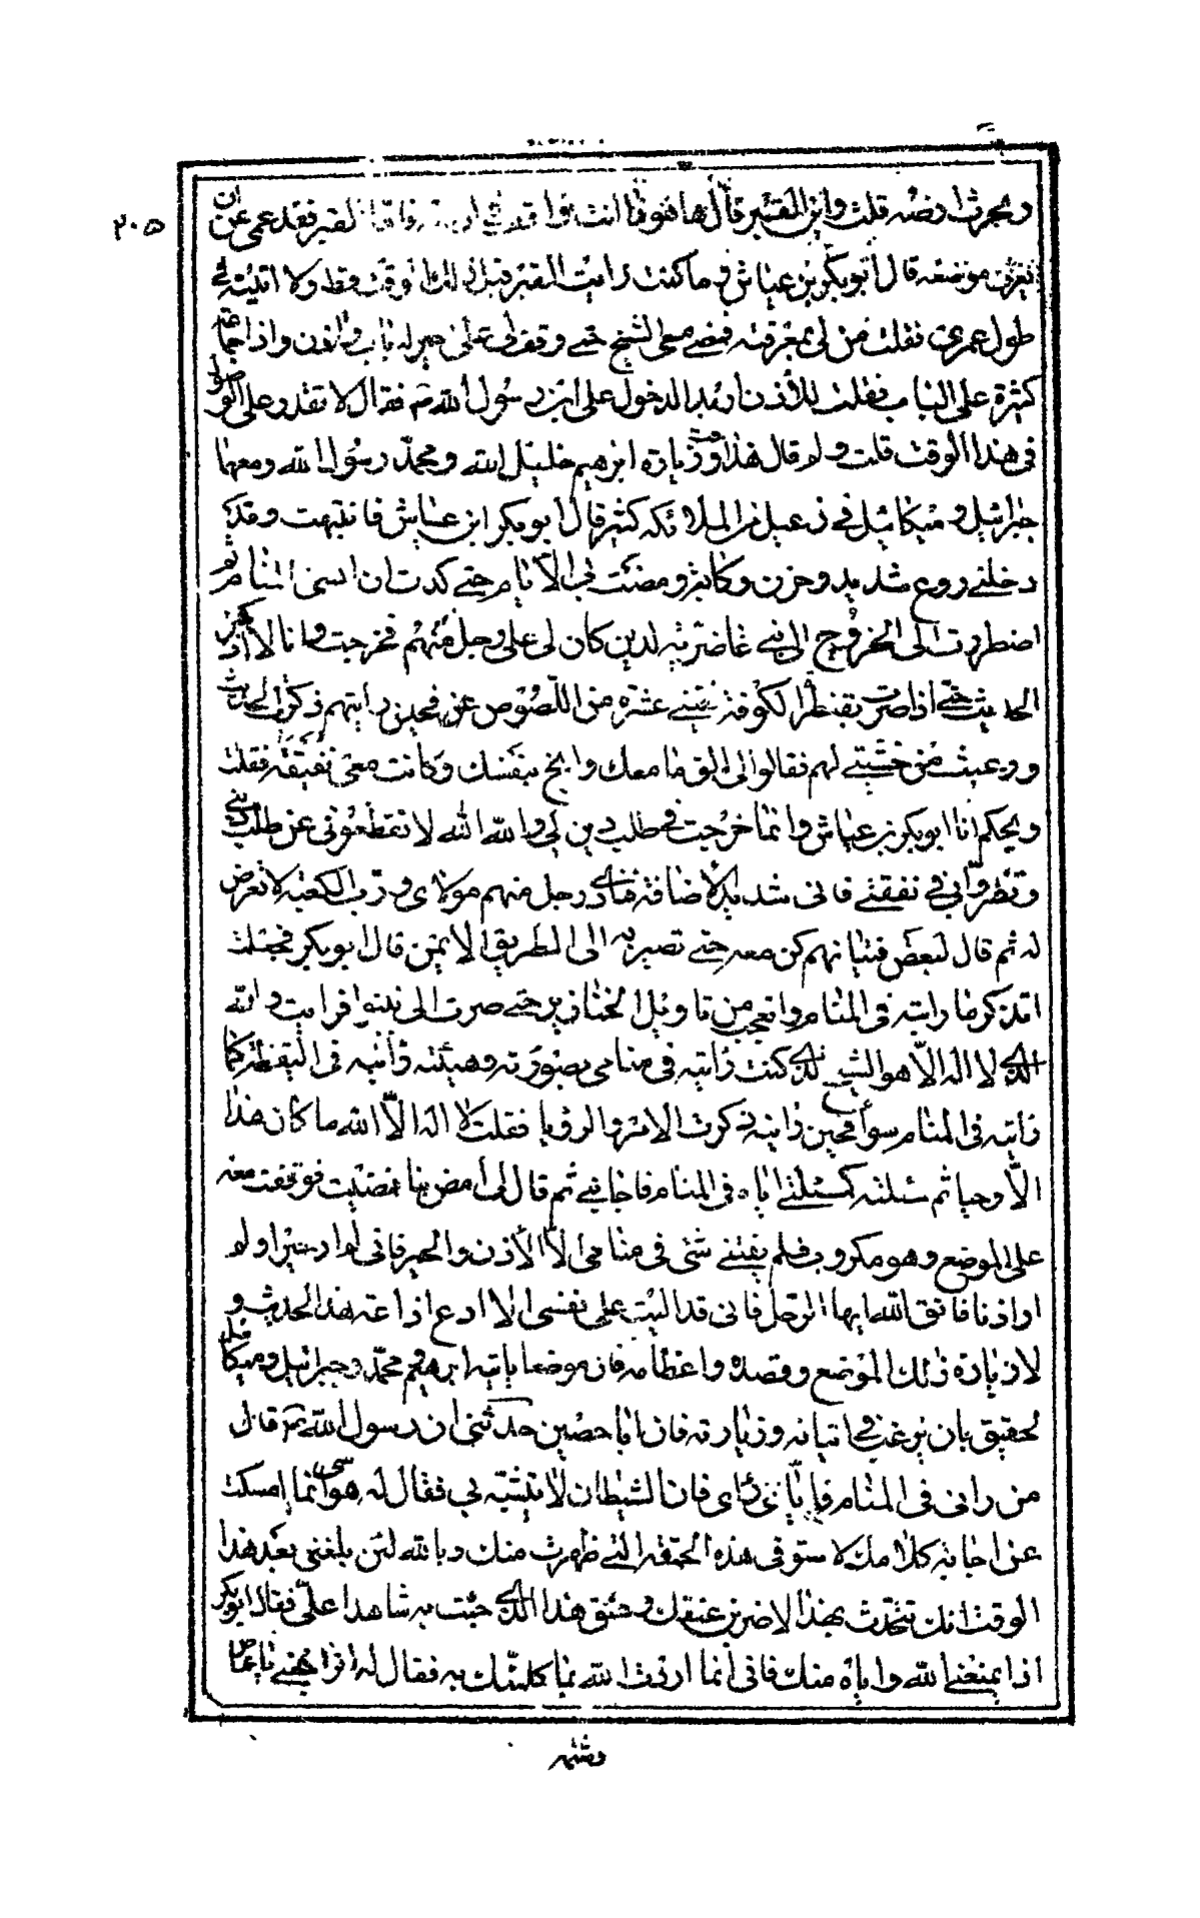 ٢٠٥
ويحرث ارضه قلت واين القبر قال ها هو ذا انت واقف في ارضه فاما القبر فقد عمى عن ان
يعرف موضعه قال ابو بكر بن عياش و ما كنت رايت القبر قبل ذلك الوقت قط ولا اتيته في
طول عمرى فقلت من لى بمعرفته فمضى معى الشيخ حتى وقف لى على حير له باب واذن واذا جماعة
كثيرة على الباب فقلت للآذن اريد الدخول على ابن رسول الله ص فقال لا تقدر على الوصول
فى هذا الوقت قلت ولم قال هذا وقت زيارة ابرهيم خليل الله ومحمد رسول الله ومعهما
جبرائيل وميكائيل في رعيل من الملائكه كثير قال ابو بكر ابن عياش فانتبهت وقد
دخلنى روع شديد وحزن وكابة ومضت بى الايام حتى كدت ان انسى المنام ثم
اضطررت الى الخروج الى بنى غاضريه لدين كان لى على رجل منهم فخرجت وانا لا اذكر
الحديث حتى اذا صرت بقنطرة الكوفة لقينى عشره من اللصوص فحين رايتهم ذكرت الحديث
ورعبت من خشيتى لهم فقالوا لى الق ما معك وانج بنفسك وكانت معى نفيقة فقلت
ويحكم انا ابو بكر بن عياش وانما خرجت فى طلب دين لى والله الله لا تقطعونى عن طلب دينى
وتضروا بى فى نفقتى فانى شديد الاضافة فنادى رجل منهم مولاى ورب الكعبة لا تعرض
له ثم قال لبعض فتيانهم كن معه حتى تصير به الى الطريق الايمن قال ابو بكر فجعلت
اتذكر ما رايته فى المنام واتعجب من تاويل الخنازير حتى صرت الى نينوا فرايت والله
الذى لا اله الا هو الشيخ الذى كنت رايته فى منامى بصورته وهيئته رأيته فى اليقظة كما
رايته فى المنام سواء فحين رايته ذكرت الامر والرؤيا فقلت لا اله الا الله ما كان هذا
الا وحيا ثم سئلته كمسئلتى اياه فى المنام فاجابنى ثم قال لى امض بنا فمضيت فوقفت معه
على الموضع وهو مكروب فلم يفتنى شئ فى منامى الا الاذن والحير فانى لم ار حيرا ولم
ار اذنا فاتق الله ايها الرجل فانى قد اليت على نفسى الا ادع اذاعة هذا الحديث و
لا زيارة ذلك الموضع وقصده واعظامه فان موضعا ياتيه ابرهيم ومحمد وجبرائيل وميكائيل
لحقيق بان يرغب فى اتيانه وزيارته فان ابا حصين حدثنى ان رسول الله ص قال
من رانى فى المنام فاياى راى فان الشيطان لا يتشبه بى فقال له موسى انما امسكت
عن اجابة كلامك لاستوفى هذه الحمقة التى ظهرت منك وبالله لئن بلغنى بعد هذا
الوقت انك تتحدث بهذا لاضربن عنقك وعنق هذا الذى جئت به شاهدا على فقال ابو بكر
اذا يمنعنى الله واياه منك فانى انما اردت الله بما كلمتك به فقال له اتراجعنى يا عاص
وشتمه